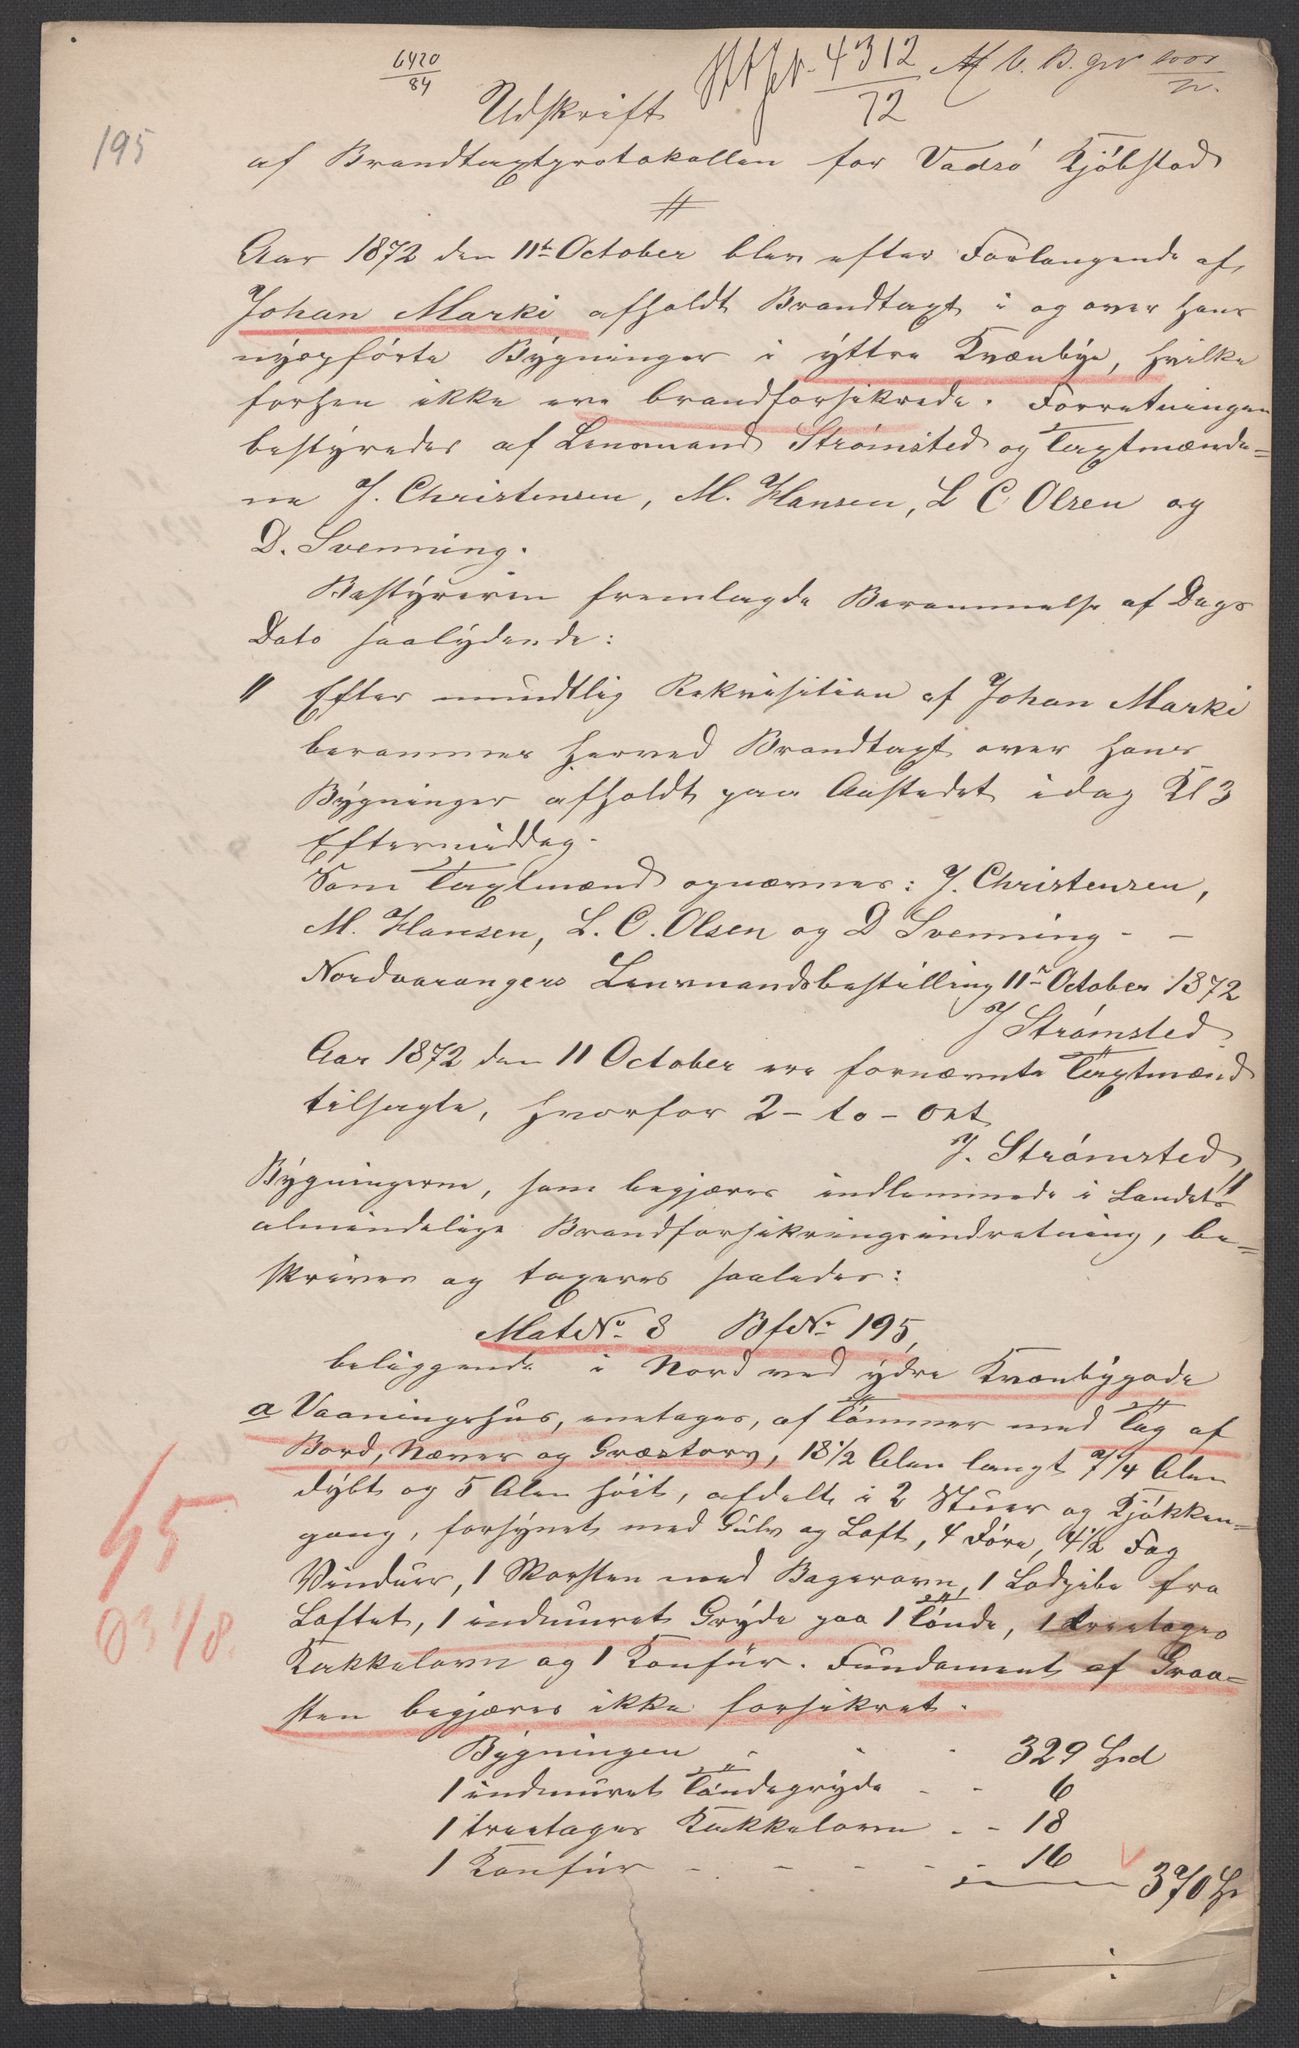 6420/84
4312/72
195
Udskrift
af Brandtaxtprotokollen for Vadsö Kjöbstad
Aar 1872 den 11te October blev efter Forlangende af
Johan Marki afholdt Brandtaxt i og over hans
nyopförte Bygninger i yttre Kvænbye, hvilke
forhen ikke ere brandforsikrede. Forretningen
bestyredes af Lensmand Strömsted og Taxtmænde=
ne J. Christensen, M. Hansen, L C Olsen og
D. Svenning.
Bestyreren fremlagde Berammelse af Dags
Dato saalydende:
" Efter mundtlig Rekvisition af Johan Marki
berammes herved Brandtaxt over hans
Bygninger afholdt paa Aastedet idag Kl 3
Eftermiddag.
Som Taxtmænd opnævnes: J. Christensen,
M. Hansen, L. C. Olsen og D Svenning - -
Nordvarangers Lensmandsbestilling 11te October 1872
J Strömsted
Aar 1872 den 11 October ere fornævnte Taxtmænd
tilsagte, hvorfor 2 - to - Ort
J. Strömsted"
Bygningerne, som begjæres indlemmede i Landets
almindelige Brandforsikringsindretning, be=
skrives og taxeres saaledes:
MatNo 8 BfNo 195,
beliggende i Nord ved ydre Kvænbygade
a Vaaningshus, enetages, af Tömmer med Tag af
Bord, Næver og Græstorv, 18 1/2 Alen langt 7 1/4 Alen
dybt og 5 Alen höit, afdelt i 2 Stuer og Kjökken=
gang, forsynet med Gulv og Loft, 4 Döre, 4 1/2 Fag
Vinduer, 1 Skorsten med Bagerovn, 1 Lodpibe fra
Loftet, 1 indmuret Gryde paa 1 Tönde, 1 treetages
Kakkelovn og 1 Konfür. Fundament af Graa=
sten begjæres ikke forsikret.
Bygningen - - - 329 Spd
1 indmuret Töndegryde - - 6
1 treetages Kakkelovn - - 18
1 Konfür - - - - - - 16
370 Sp